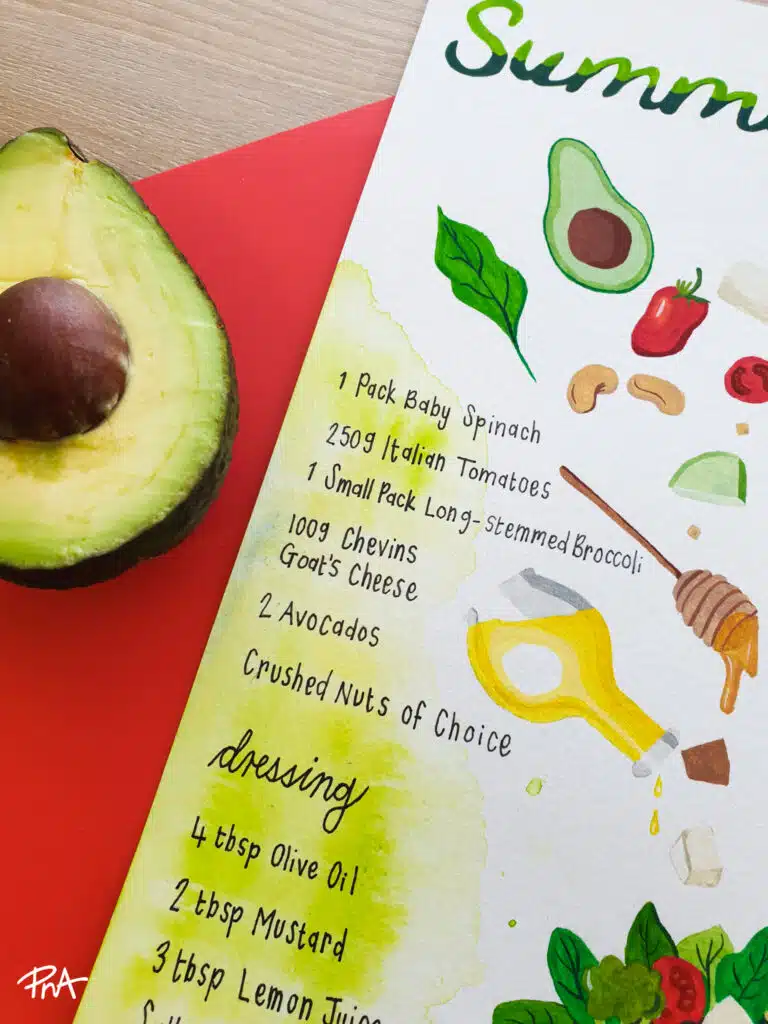 Summ
1 Pack Baby Spinach
250g Italian Tomatoes
1 Small Pack Long-stemmed Broccoli
100g Chevins
Goat's Cheese
2 Avocados
Crushed Nuts of Choice
dressing
4 tbsp Olive Oil
2 tbsp Mustard
3 tbsp Lemon Juice
PnA